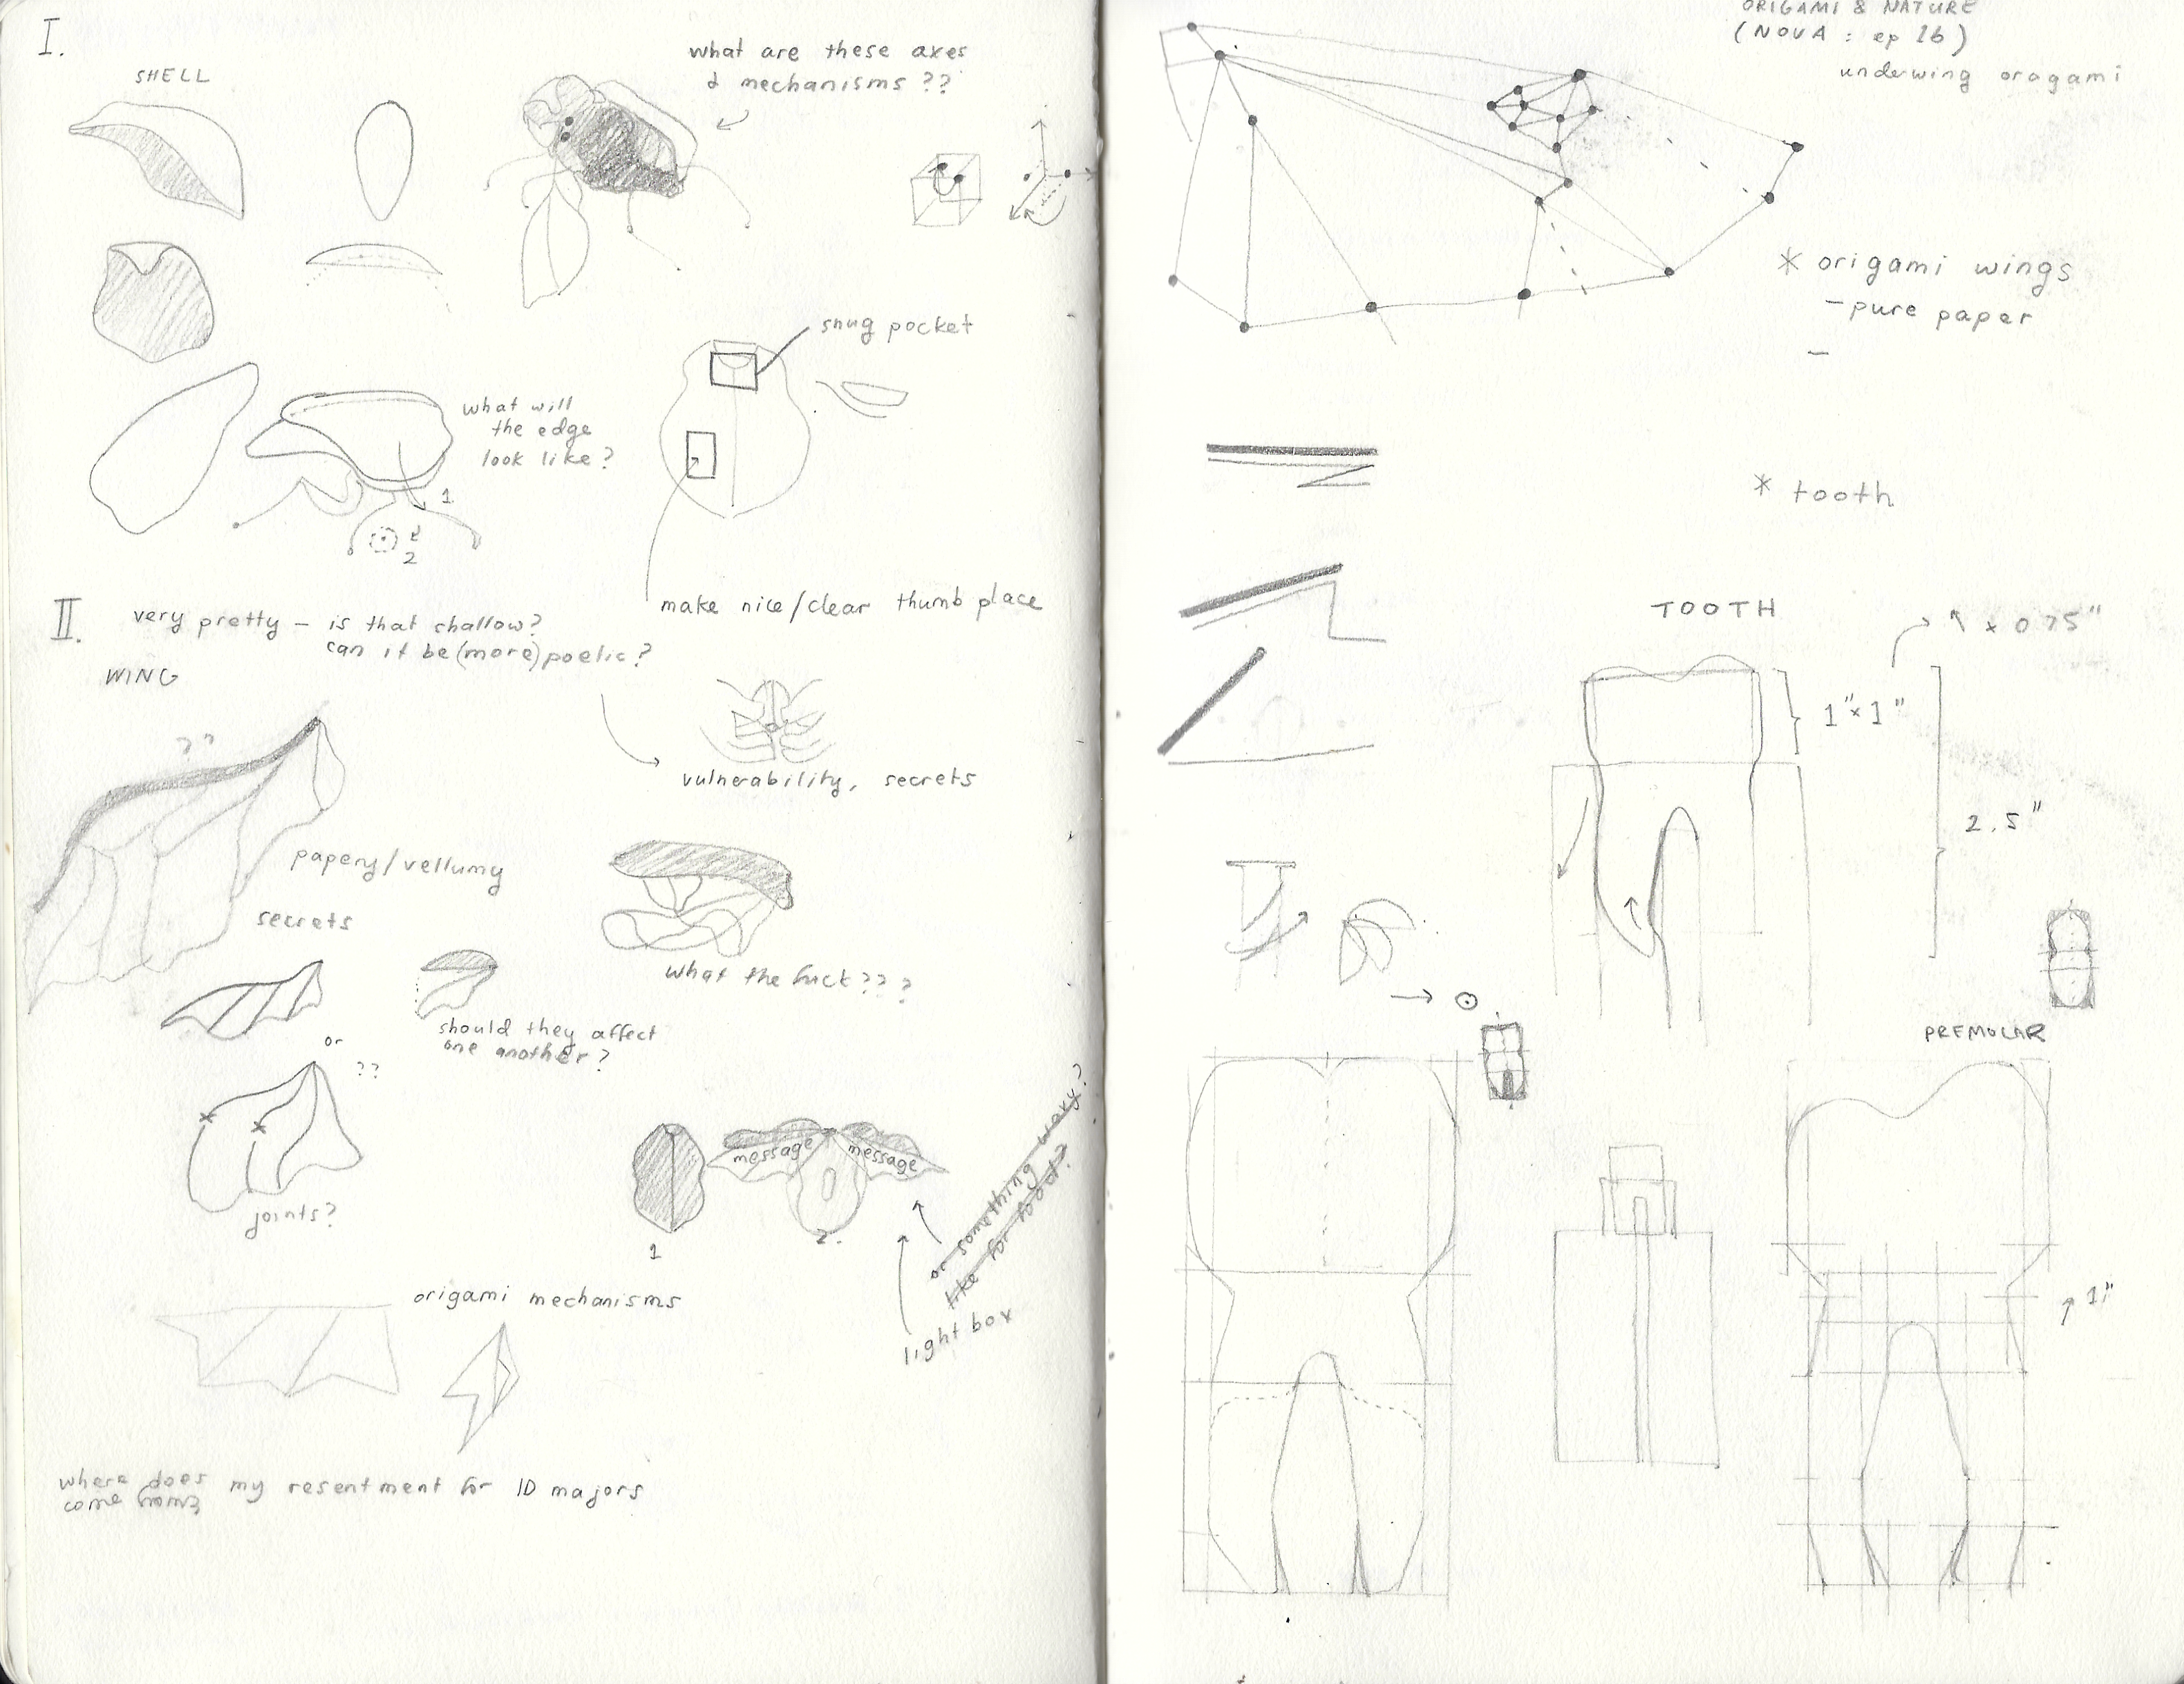 I.
SHELL
what are these axes
& mechanisms ??
snug pocket
what will
the edge
look like?
1
2
make nice/clear thumb place
II.
very pretty — is that shallow?
can it be (more) poetic?
WING
??
vulnerability, secrets
papery/vellumy
secrets
what the fuck???
should they affect
one another?
or
??
joints?
message
message
1
2.
or something waxy?
like for food?
light box
origami mechanisms
where does my resentment for ID majors
come from?
ORIGAMI & NATURE
(NOVA : ep 16)
underwing oragami
* origami wings
—pure paper
—
* tooth
TOOTH
x 0.75"
1"x1"
2.5"
PREMOLAR
1"